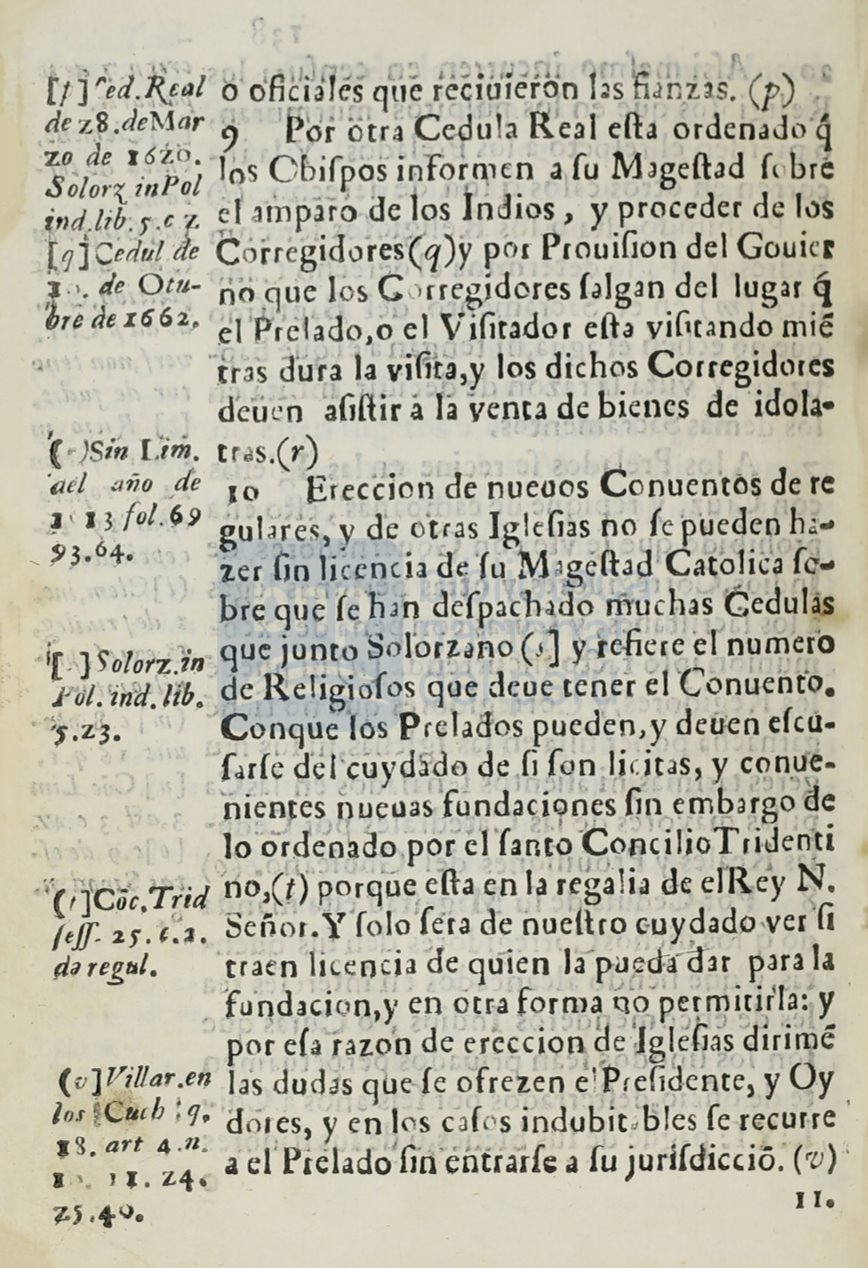 o oficiales que reciuieron las fianzas. (p)
9 Por otra Cedula Real eſta ordenado q́
los Obiſpos informen a ſu Mageſtad ſobre
el amparo de los Indios, y proceder de los
Corregidores(q)y por Prouiſion del Gouier
no que los Corregidores ſalgan del lugar q́
el Prelado,o el Viſitador eſta viſitando miē
tras dura la viſita,y los dichos Corregidores
deuen aſiſtir a la venta de bienes de idola-
tras.(r)
10 Ereccion de nueuos Conuentos de re
gulares, y de otras Igleſias no ſe pueden ha-
zer ſin licencia de ſu Mageſtad Catolica ſo-
bre que ſe han deſpachado muchas Cedulas
que junto Solorzano (s] y refiere el numero
de Religioſos que deue tener el Conuento.
Conque los Prelados pueden,y deuen eſcu-
ſarſe del cuydado de ſi ſon licitas, y conue-
nientes nueuas fundaciones ſin embargo de
lo ordenado por el ſanto Concilio Tridenti
no,(t) porque eſta en la regalia de el Rey N.
Señor. Y ſolo ſera de nueſtro cuydado ver ſi
traen licencia de quien la pueda dar para la
fundacion,y en otra forma no permitirla: y
por eſa razon de ereccion de Igleſias dirimē
las dudas que ſe ofrezen el Preſidente, y Oy
dores, y en los caſos indubitables ſe recurre
a el Prelado ſin entrarſe a ſu juriſdicciō. (v)
11.
[p] Ced. Real
de 28. de Mar
zo de 1620.
Solorz in Pol
ind. lib. 5. c 2.
[q] Cedul de
de Otu-
bre de 1662.
( )Sin Lim.
del año de
13 fol. 69
93.64.
[ ] Solorz. in
Pol. ind. lib.
5.23.
(t]Cōc. Trid
ſeſſ. 25. c. 3.
da regul.
(v] Villar. en
los Cuch q.
18. art 4. n.
11. 24.
25.40.